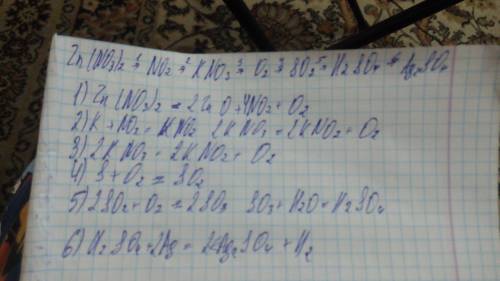 Zn(NO3)2 →1 NO2 →2 KNO3 →3 O2 →4 SO2 →5 H2SO4 →6 Ag2SO4
1) Zn(NO3)2 = 2ZnO + 4NO2 + O2
2) K + NO2 = KNO2 2KNO3 = 2KNO2 + O2
3) 2KNO3 = 2KNO2 + O2
4) S + O2 = SO2
5) 2SO2 + O2 = 2SO3 SO3 + H2O = H2SO4
6) H2SO4 + 2Ag = 2Ag2SO4 + H2